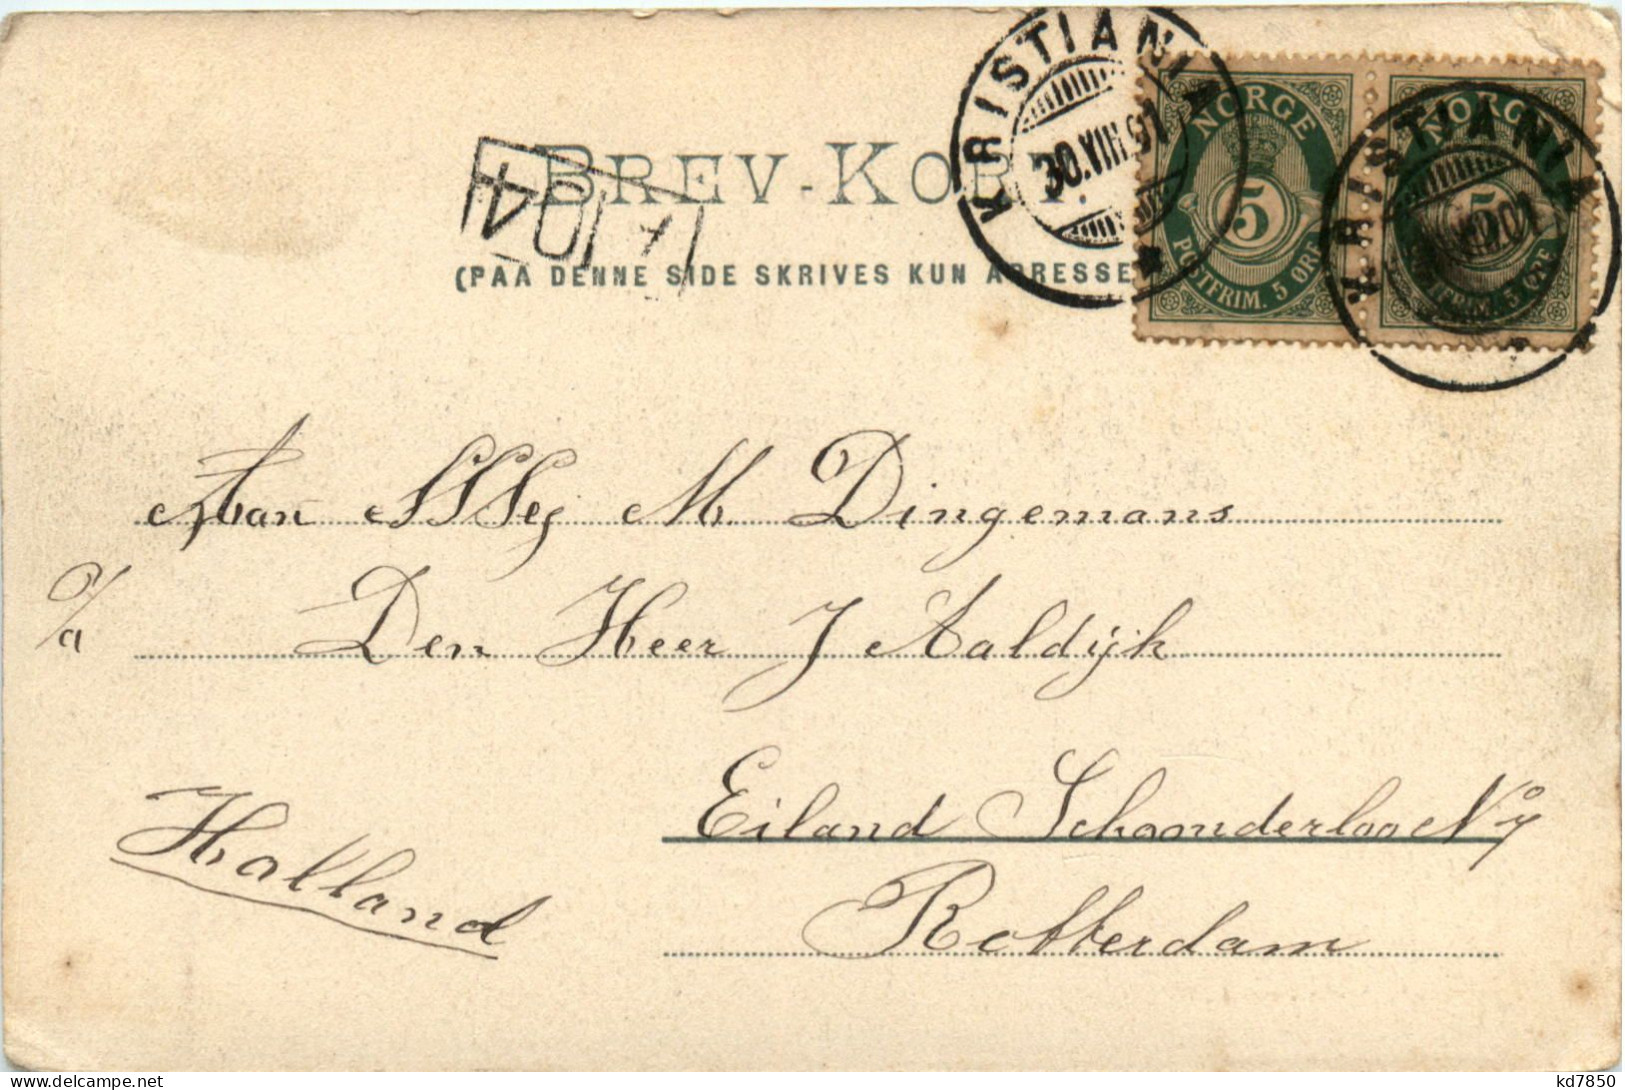 BREV-KORT
(PAA DENNE SIDE SKRIVES KUN ADRESSE
KRISTIANIA
30.VIII.01
NORGE
5
POSTFRIM. 5 ØRE
NORGE
5
POSTFRIM. 5 ØRE
KRISTIANIA
01
Aan M. Dingemans
a/a Den Heer J Aaldijk
Eiland Schoonderloo
Rotterdam
Holland
kd7850